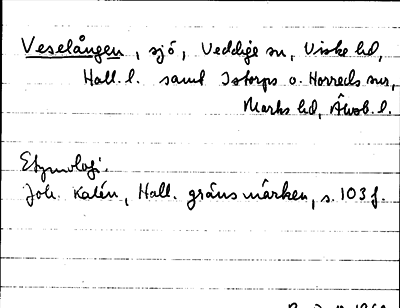 Veselången, sjö, Veddige sn, Viske hd,
Hall. l. samt Istorps o. Horreds snr,
Marks hd, Älvsb. l.
Etymologi.
Joh. Kalén, Hall. gränsmärken, s. 103 f.